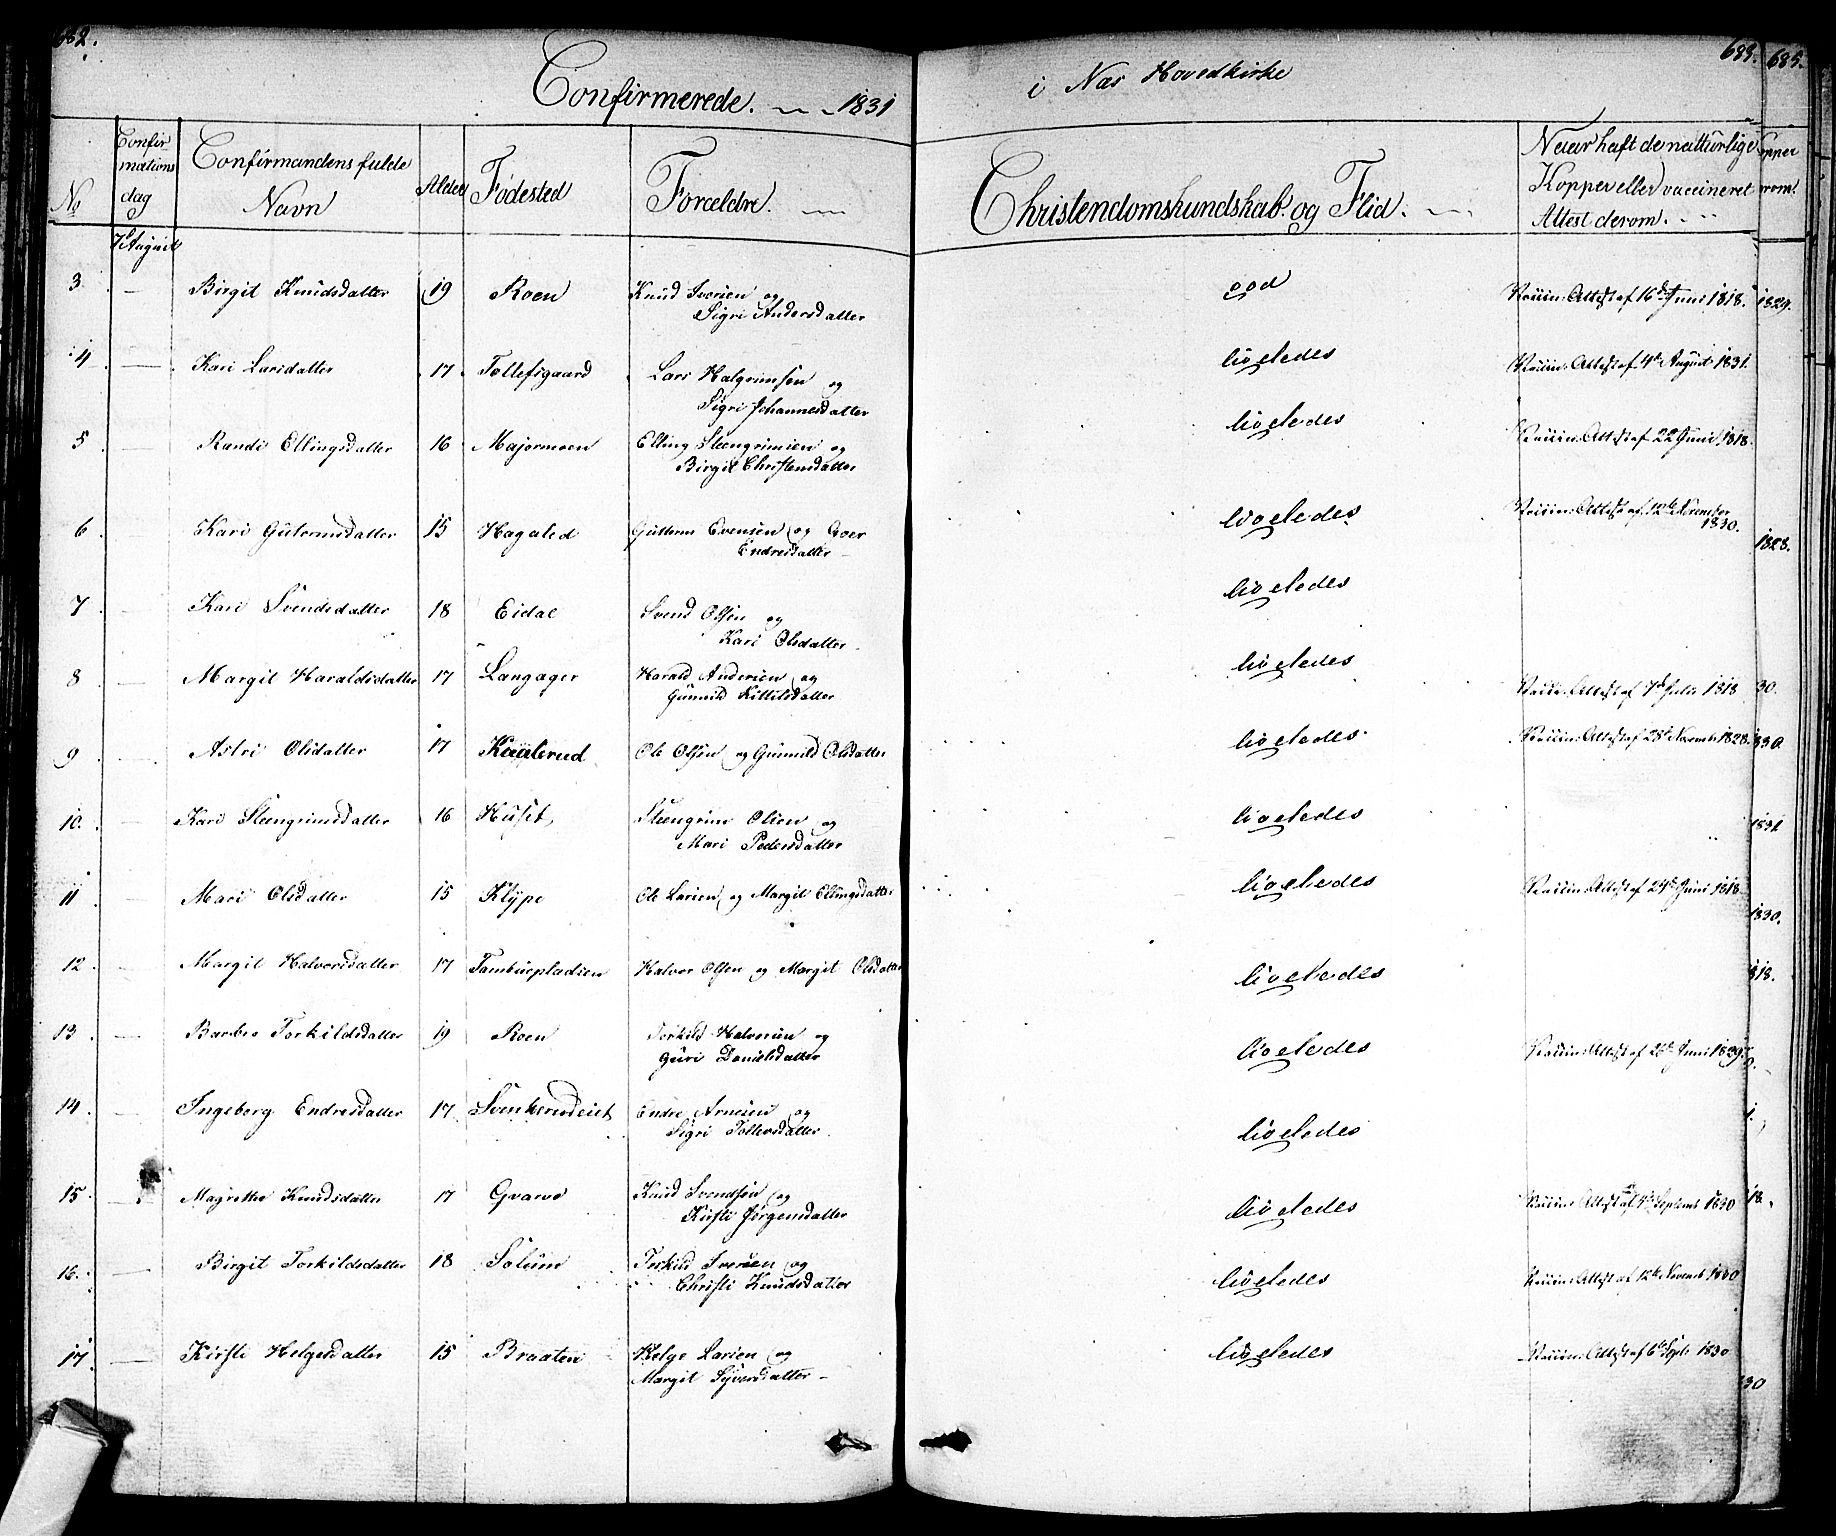 682.
Confirmerede. 1831
i Næs Hovedkirke
683.
685.
No
Confir
mations
dag
Confirmandens fulde
Navn
Alder
Fødested
Forældre.
Christendomskundskab. og Flid.
Naar haft de natturlige
Kopper eller vaccineret
Attest derom.
7de August
3 — Birgit Knudsdatter 19 Roen Knud Iversen og god Vaccin: Attest af 16de Juni 1818. 1829.
Sigri Andersdatter
4 — Kari Larsdatter 17 Tollefsgaard Lars Halgrimsøn og ligeledes Vaccin: Attest af 4de August 1831.
Sigri Johannesdatter
5 — Randi Ellingsdatter 16 Majormoen Elling Steengrimsen og ligeledes Vaccin: Attest af 22 Juni 1818.
Birgit Christensdatter
6 — Kari Gutormsdatter 15 Hagaled Guttorm Evensen og Goer ligeledes Vaccin: Attest af 12te November
1830.
Endresdatter — 1828.
7 — Kari Svendsdatter 18 Eidal Svend Olsøn og ligeledes
Kari Olsdatter.
8 — Margit Haraldsdatter 17 Langager Harald Andersen og ligeledes Vaccin: Attest af 7de Julii 1818 30.
Gunnild Kittilsdatter
9 — Astri Olsdatter 17 Olé Olsøn og Gunnild Olsdatter ligeledes Vaccin: Attest af 28de Novemb 1828. 1830.
10. — Kari Steengrimsdatter 16 Huset Steengrim Olsen og ligeledes 1831
Mari Pedersdatter
11 — Mari Olsdatter 15 Klype Ole Larsen og Margit Ellingsdatter ligeledes Vaccin: Attest af 24de Juni 1818.
1830.
12 — Margit Halvorsdatter 17 Tamburpladsen Halvor Olsen og Margit Olsdatter ligeledes 818.
13 — Barbro Torkildsdatter 19 Roen Torkild Halvorsen og ligeledes Vaccin: Attest af 26de Juni 1829
Guri Danielsdatter
14. — Ingeborg Endresdatter 17 Svenkerudeiet Endre Arnesen og ligeledes
Sigri Tollevsdatter.
15. Magrethe Knudsdatter 17 Gvarve Knud Svendsøn og ligeledes Vaccin: Attest af 4de Septemb 1830 18.
Kirsti Jørgensdatter
16. — Birgit Torkildsdatter 18 Soleim Torkild Iversen og ligeledes Vaccin: Attest af 12te Novemb 1830
Christi Knudsdatter
17. — Kirsti Helgesdatter 15 Braaten Helge Larsen og ligeledes Vaccin: Attest af 6te Septb 1830
Margit Syversdatter — 30